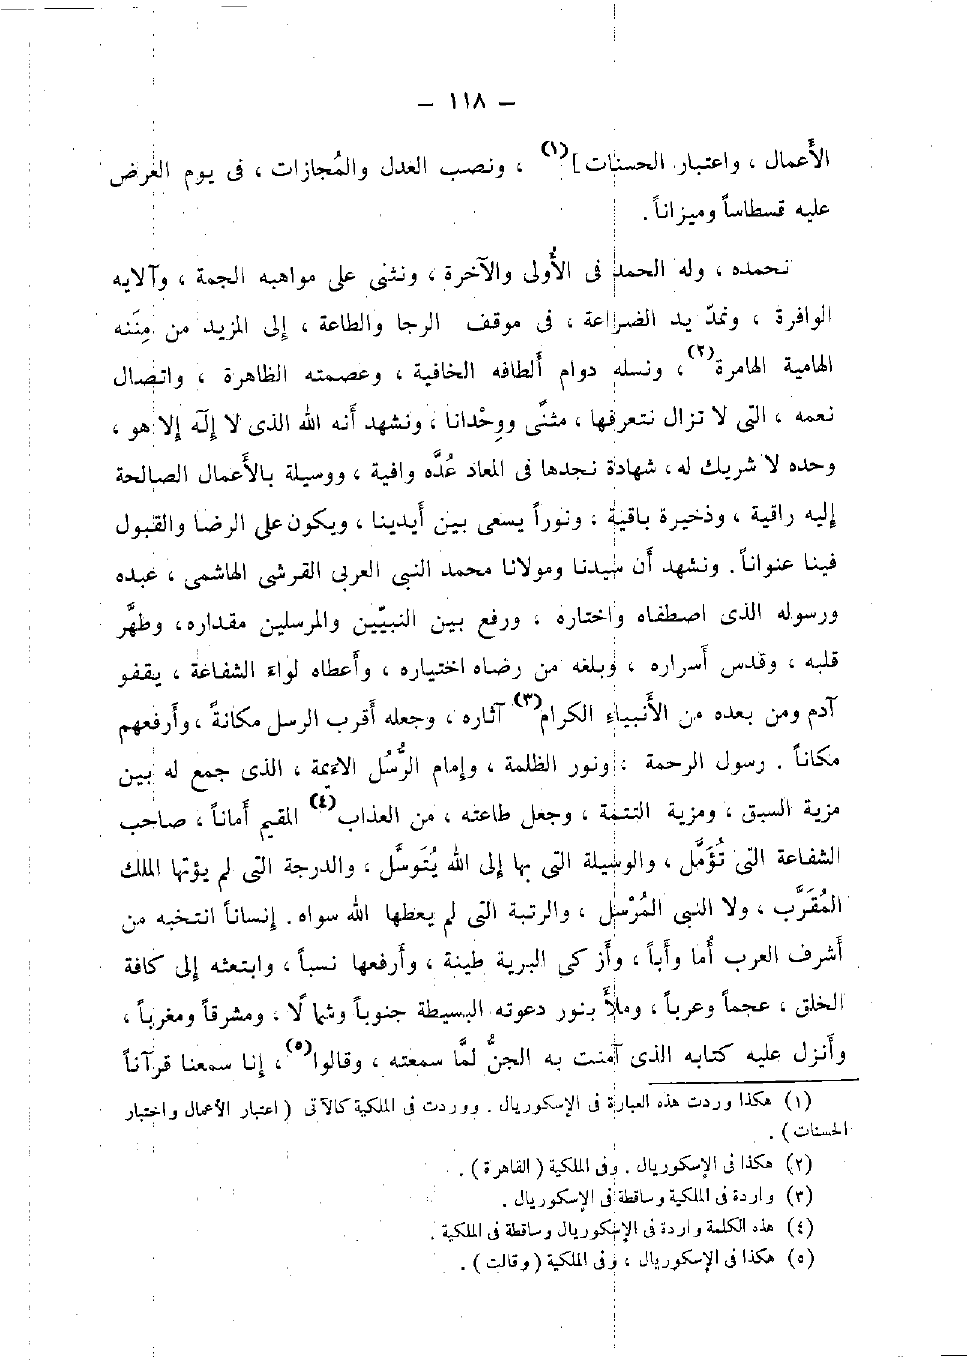 — ١١٨ —
الأَعمال ، واعتبار الحسنات ] (١) ، ونصب العدل والمُجازات ، فى يوم العرض
عليه قسطاساً وميزاناً .
نحمده ، وله الحمد فى الأُولى والآخرة ، ونثنى على مواهبه الجمة ، وآلايه
الوافرة ، ونمدّ يد الضراعة ، فى موقف الرجا والطاعة ، إلى المزيد من مِنَنه
الهامية الهامرة (٢) ، ونسله دوام أَلطافه الخافية ، وعصمته الظاهرة ، واتصال
نعمه ، التى لا تزال نتعرفها ، مثنًى ووِحْدانا ، ونشهد أَنه الله الذى لا إِلَه إلا هو ،
وحده لا شريك له ، شهادة نجدها فى المعاد عُدَّه وافية ، ووسيلة بالأَعمال الصالحة
إليه راقية ، وذخيرة باقية ، ونوراً يسعى بين أَيدينا ، ويكون على الرضا والقبول
فينا عنواناً . ونشهد أَن سيدنا ومولانا محمد النبى العربى القرشى الهاشمى ، عبده
ورسوله الذى اصطفاه واختاره ، ورفع بين النبيّين والمرسلين مقداره ، وطهَّر
قلبه ، وقدس أَسراره ، وبلغه من رضاه اختياره ، وأَعطاه لواء الشفاعة ، يقفو
آدم ومن بعده من الأَنبياء الكرام (٣) آثاره ، وجعله أَقرب الرسل مكانةً ، وأَرفعهم
مكاناً . رسول الرحمة ، ونور الظلمة ، وإمام الرُّسُل الاءيمة ، الذى جمع له بين
مزية السبق ، ومزية التتمة ، وجعل طاعته ، من العذاب (٤) المقيم أَماناً ، صاحب
الشفاعة التى تُؤَمَّل ، والوسيلة التى بها إلى الله يُتَوسَّل ، والدرجة التى لم يؤتها الملك
المُقرَّب ، ولا النبى المُرْسل ، والرتبة التى لم يعطها الله سواه . إنساناً انتخبه من
أَشرف العرب أُما وأَباً ، وأَزكى البرية طينة ، وأَرفعها نسباً ، وابتعثه إلى كافة
الخلق ، عجماً وعرباً ، وملأَ بنور دعوته البسيطة جنوباً وشمالًا ، ومشرقاً ومغرباً ،
وأَنزل عليه كتابه الذى آمنت به الجنُّ لمَّا سمعته ، وقالوا (٥) ، إنا سمعنا قرآناً
(١) هكذا وردت هذه العبارة فى الإسكوريال . ووردت فى الملكية كالآتى ( اعتبار الأعمال واختبار
الحسنات ) .
(٢) هكذا فى الإسكوريال . وفى الملكية ( القاهرة ) .
(٣) واردة فى الملكية وساقطة فى الإسكوريال .
(٤) هذه الكلمة واردة فى الإسكوريال وساقطة فى الملكية .
(٥) هكذا فى الإسكوريال ، وفى الملكية ( وقالت ) .